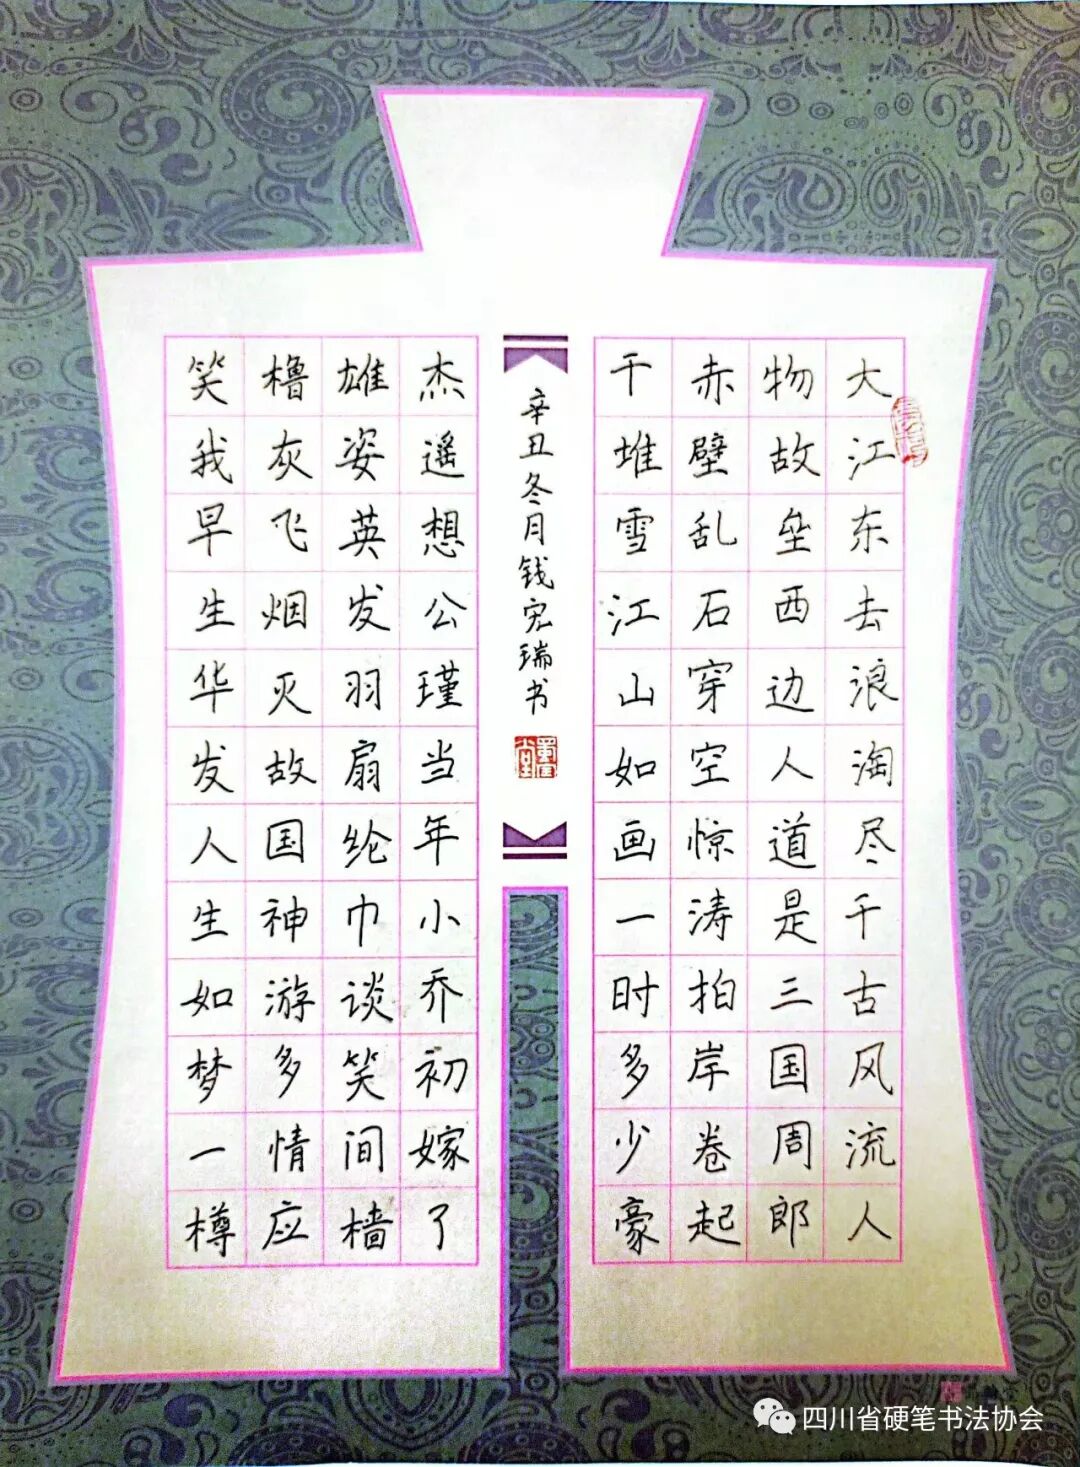 大江东去浪淘尽千古风流人
物故垒西边人道是三国周郎
赤壁乱石穿空惊涛拍岸卷起
千堆雪江山如画一时多少豪
辛丑冬月钱宪瑞书
杰遥想公瑾当年小乔初嫁了
雄姿英发羽扇纶巾谈笑间樯
橹灰飞烟灭故国神游多情应
笑我早生华发人生如梦一樽
四川省硬笔书法协会